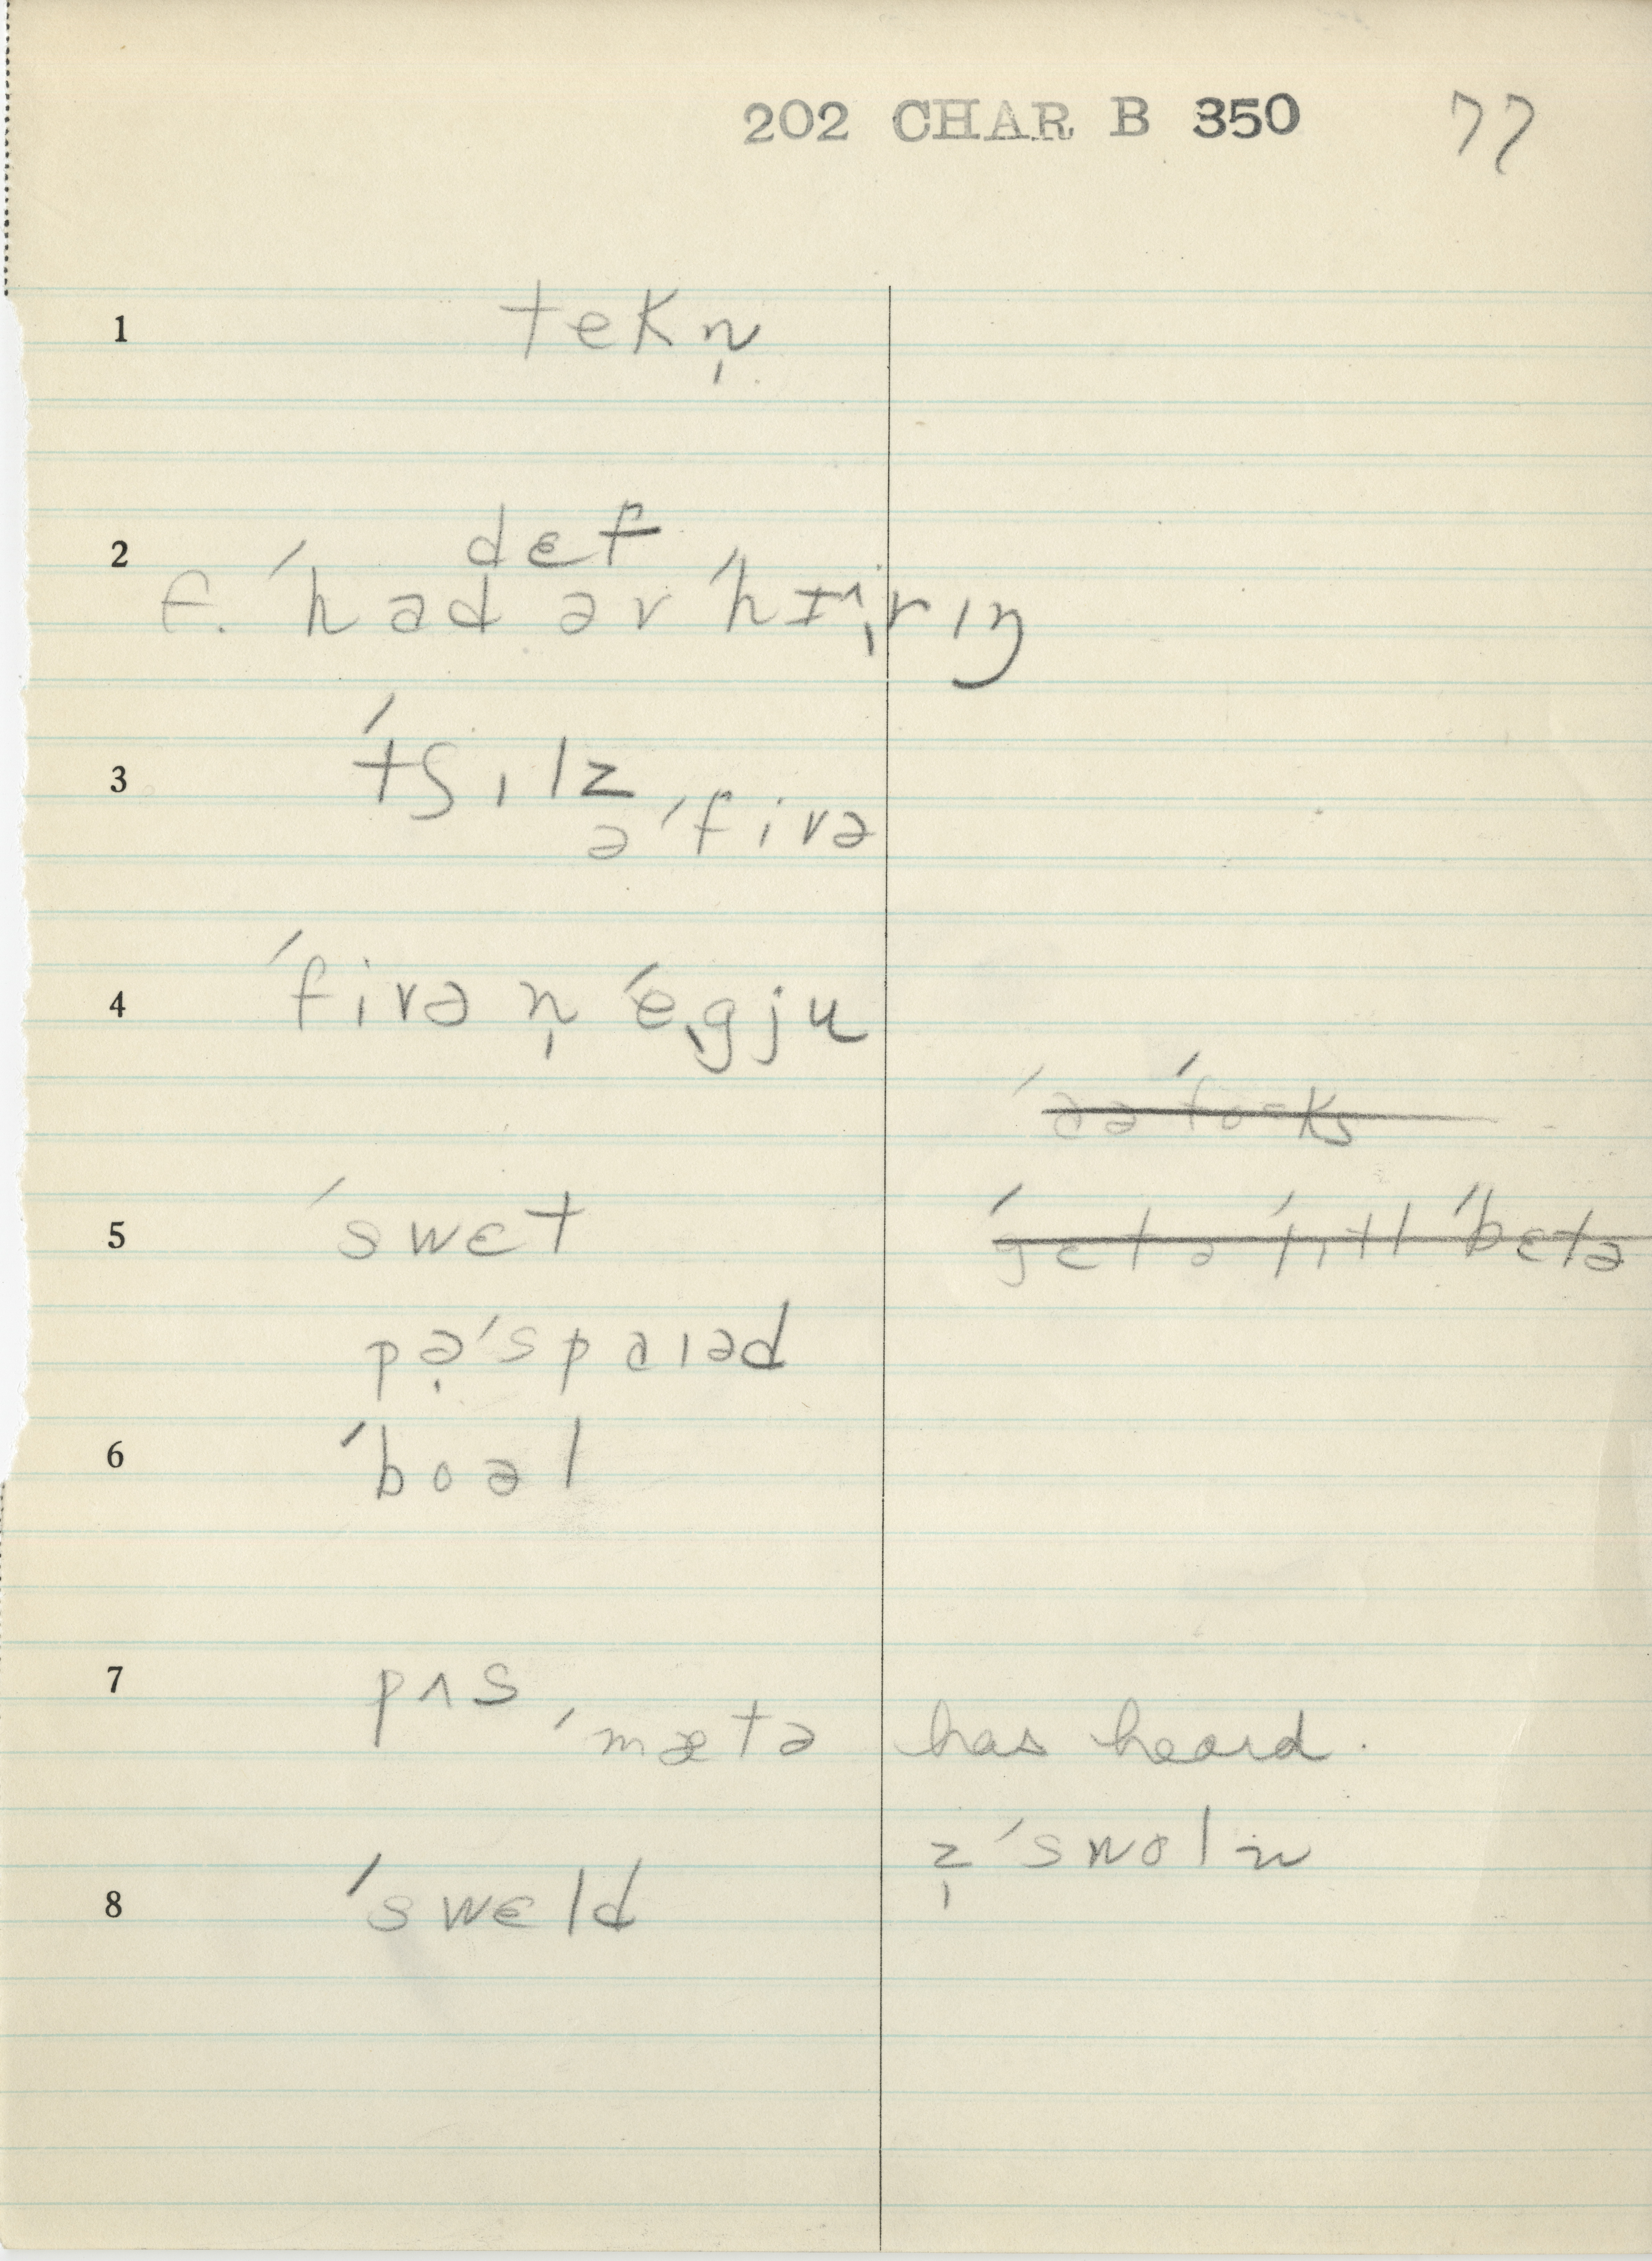 202 CHAR B 350 77
1 tekn̩
2 dɛf
f. ˈhad əv ˈhɪ^rɪŋ
3 ˈtʃɪlz
ə ˈfivə
4 ˈfivə n̩ ˈegju
5 ˈswɛt
ˈgɛt ə ˈlɪtl ˈbɛtə
pəˈspaɪəd
6 ˈboəl
7 pʌs
ˈmætə has heard.
z̩ ˈswoln
8 ˈswɛld